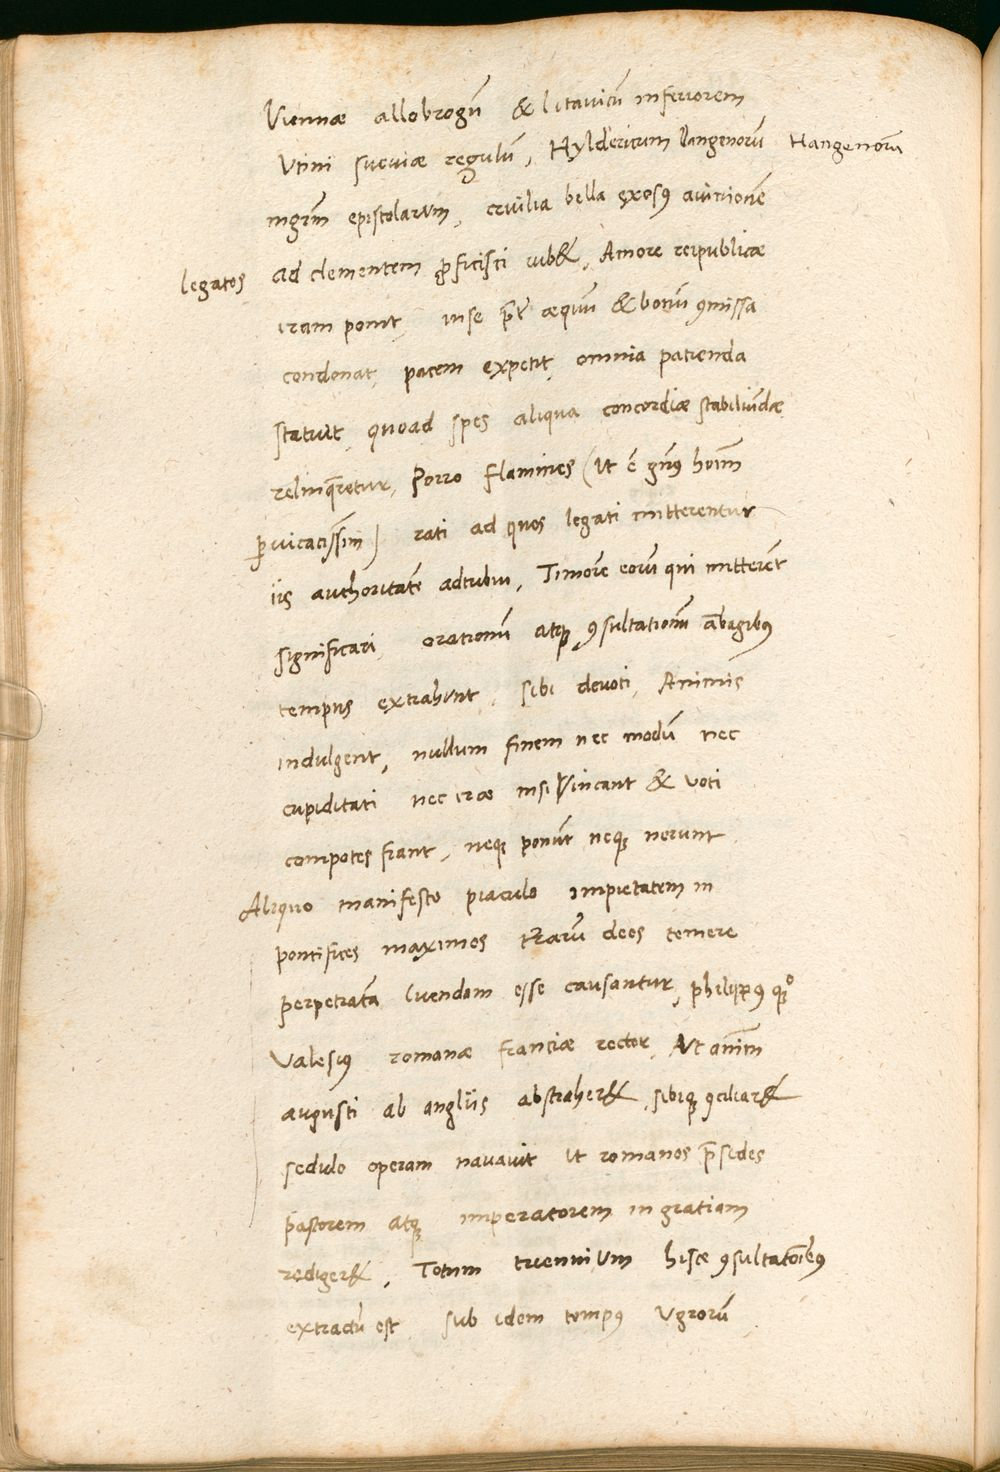 Viennæ allobrogū & litavicū inferiorem
Utini sueviæ regulū, Hyldericum langenorū Hangenorā
mgrm̄ epistolarum, civilia bella exosꝰ avinionē
legatos ad clementem ꝓficisci iub&, Amore reipublicæ
iram ponit, inse p̄t æquū & bonū ꝯmissa
condonat, pacem expetit, omnia patienda
statuit, quoad spes aliqua concordiæ stabiliūdæ
relinq̄retur, Porro flamines (ut ē gn̄ꝰ hoīm
ꝑvicacissīm) rati ad quos legati mitterentur
iis authoritatē adtribui, Timorē eorū qui mitterēt
significari, orationū atqꝫ ꝯsultationū ābagibꝰ
tempus extrahunt, sibi devoti, Animis
indulgent, nullum finem nec modū nec
cupiditati nec iræ nisi vincant & voti
compotes fiant, neqꝫ ponūt neqꝫ nerunt
Aliquo manifesto piaculo impietatem in
pontifices maximos terrarū deos temere
perpetratā luendam esse causantur, philippꝰ qꝫº
Valesiꝰ romanæ franciæ rector, Ut anīm
augusti ab angliis abstraher&, sibiqꝫ ꝯciliar&
sedulo operam navavit ut romanos p̄sides
pastorem atqꝫ imperatorem in gratiam
rediger&, Totum triennium hisce ꝯsultatōibꝰ
extractū est sub idem tempꝰ Ugrorū